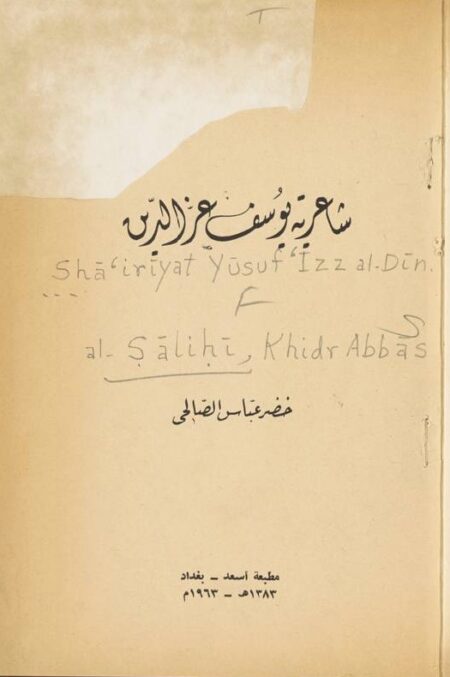 شاعرية يوسف عز الدين
Shā‘irīyat Yūsuf ‘Izz al-Dīn.
al-Ṣāliḥī, Khidr Abbās
خضر عباس الصالحي
مطبعة أسعد – بغداد
١٣٨٣هـ – ١٩٦٣م